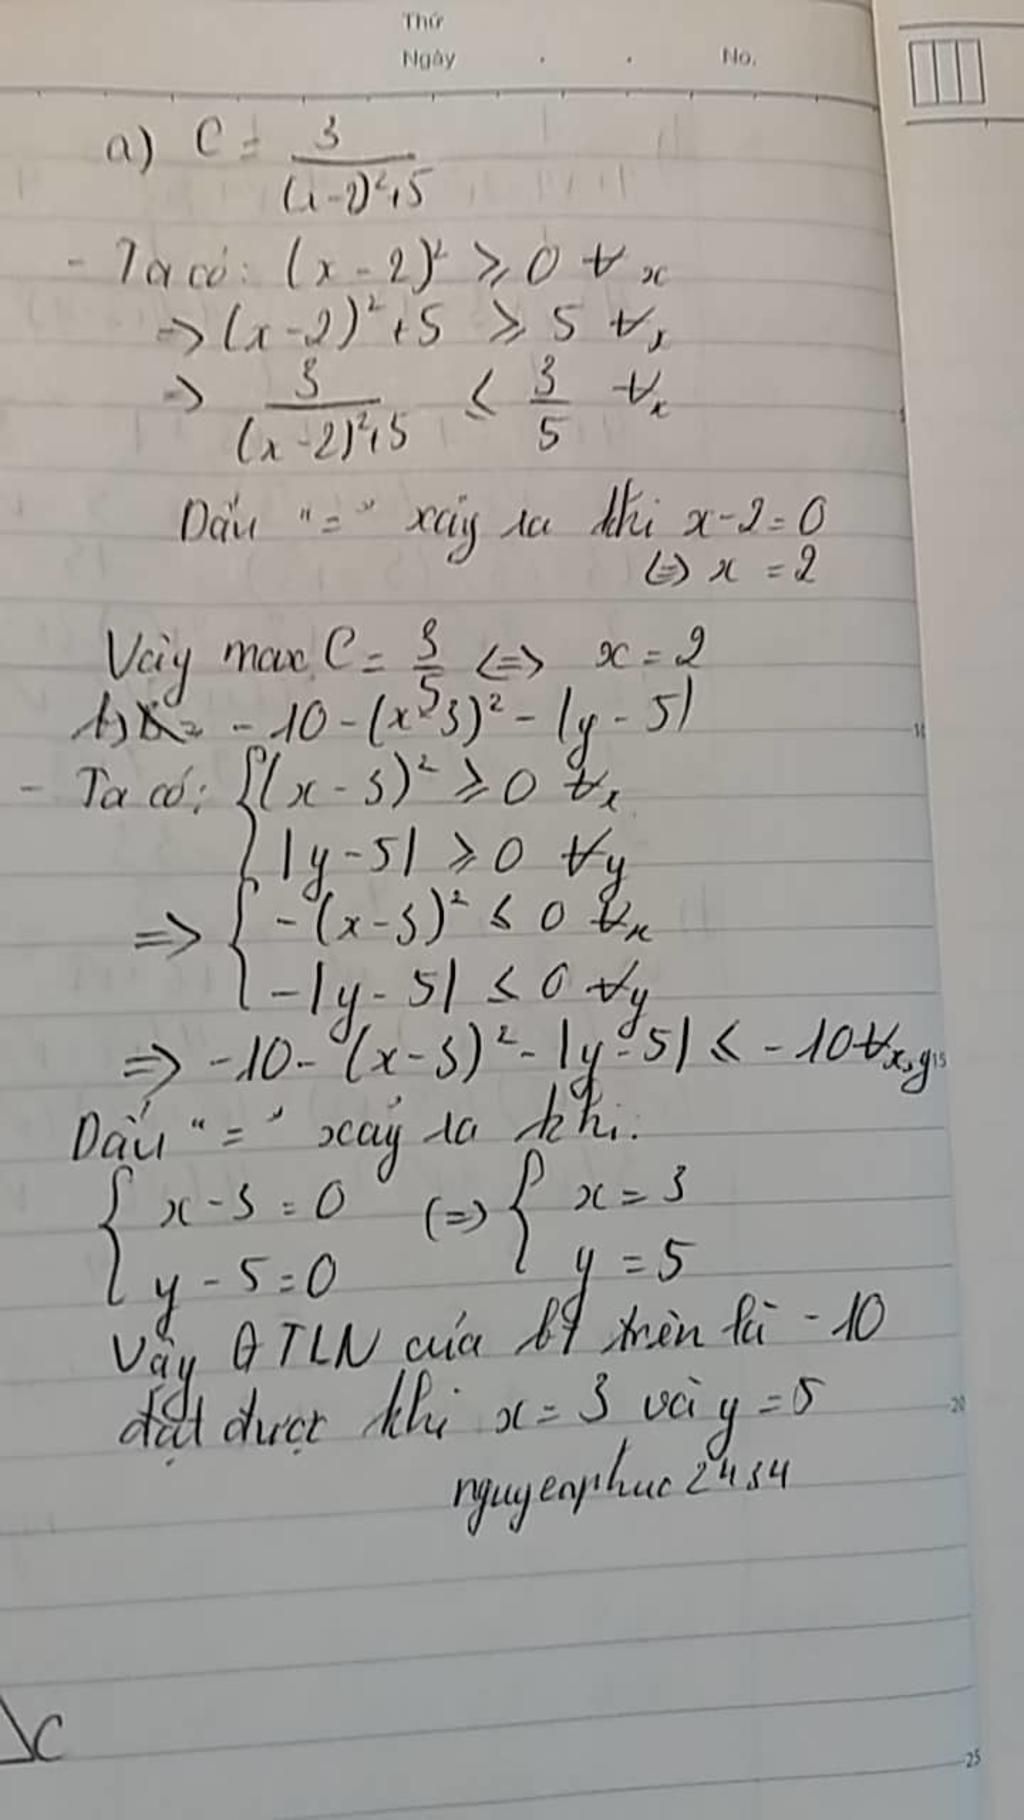 Thứ
Ngày . . No.
a) C = 3/((x-2)²+5
- Ta có: (x-2)² ≥ 0 ∀x
=> (x-2)²+5 ≥ 5 ∀x
=> 3/((x-2)²+5 ≤ 3/5 ∀x
Dấu "=" xảy ra khi x-2=0
(=) x = 2
Vậy max C = 3/5 <=> x = 2
b) -10-(x-3)²-|y-5|
- Ta có: {(x-3)² ≥ 0 ∀x
|y-5| ≥ 0 ∀y
=> {-(x-3)² ≤ 0 ∀x
-|y-5| ≤ 0 ∀y
=> -10-(x-3)²-|y-5| ≤ -10 ∀x,y 15
Dấu "=" xảy ra khi:
{x-3=0 (=> {x=3
y-5=0 y=5
Vậy GTLN của bt trên là -10
đạt được khi x=3 và y=5 20
nguyenphuc2434
△C
25